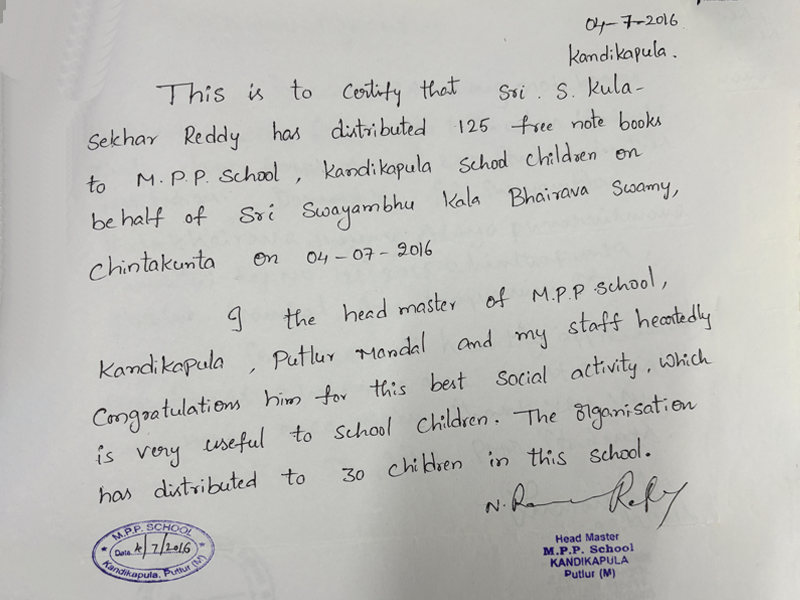 04-7-2016
Kandikapula.
This is to Certify that Sri. S. Kula-
Sekhar Reddy has distributed 125 free note books
to M.P.P. School, Kandikapula School Children on
behalf of Sri Swayambhu Kala Bhairava Swamy,
Chintakunta on 04-07-2016
I the head master of M.P.P School,
Kandikapula, Putlur Mandal and my staff heartedly
Congratulations him for this best Social activity, which
is very useful to School Children. The Organisation
has distributed to 30 children in this school.
N.
M.P.P. SCHOOL
Date. 4/7/2016
Kandikapula, Putlur (M)
Head Master
M.P.P. School
KANDIKAPULA
Putlur (M)